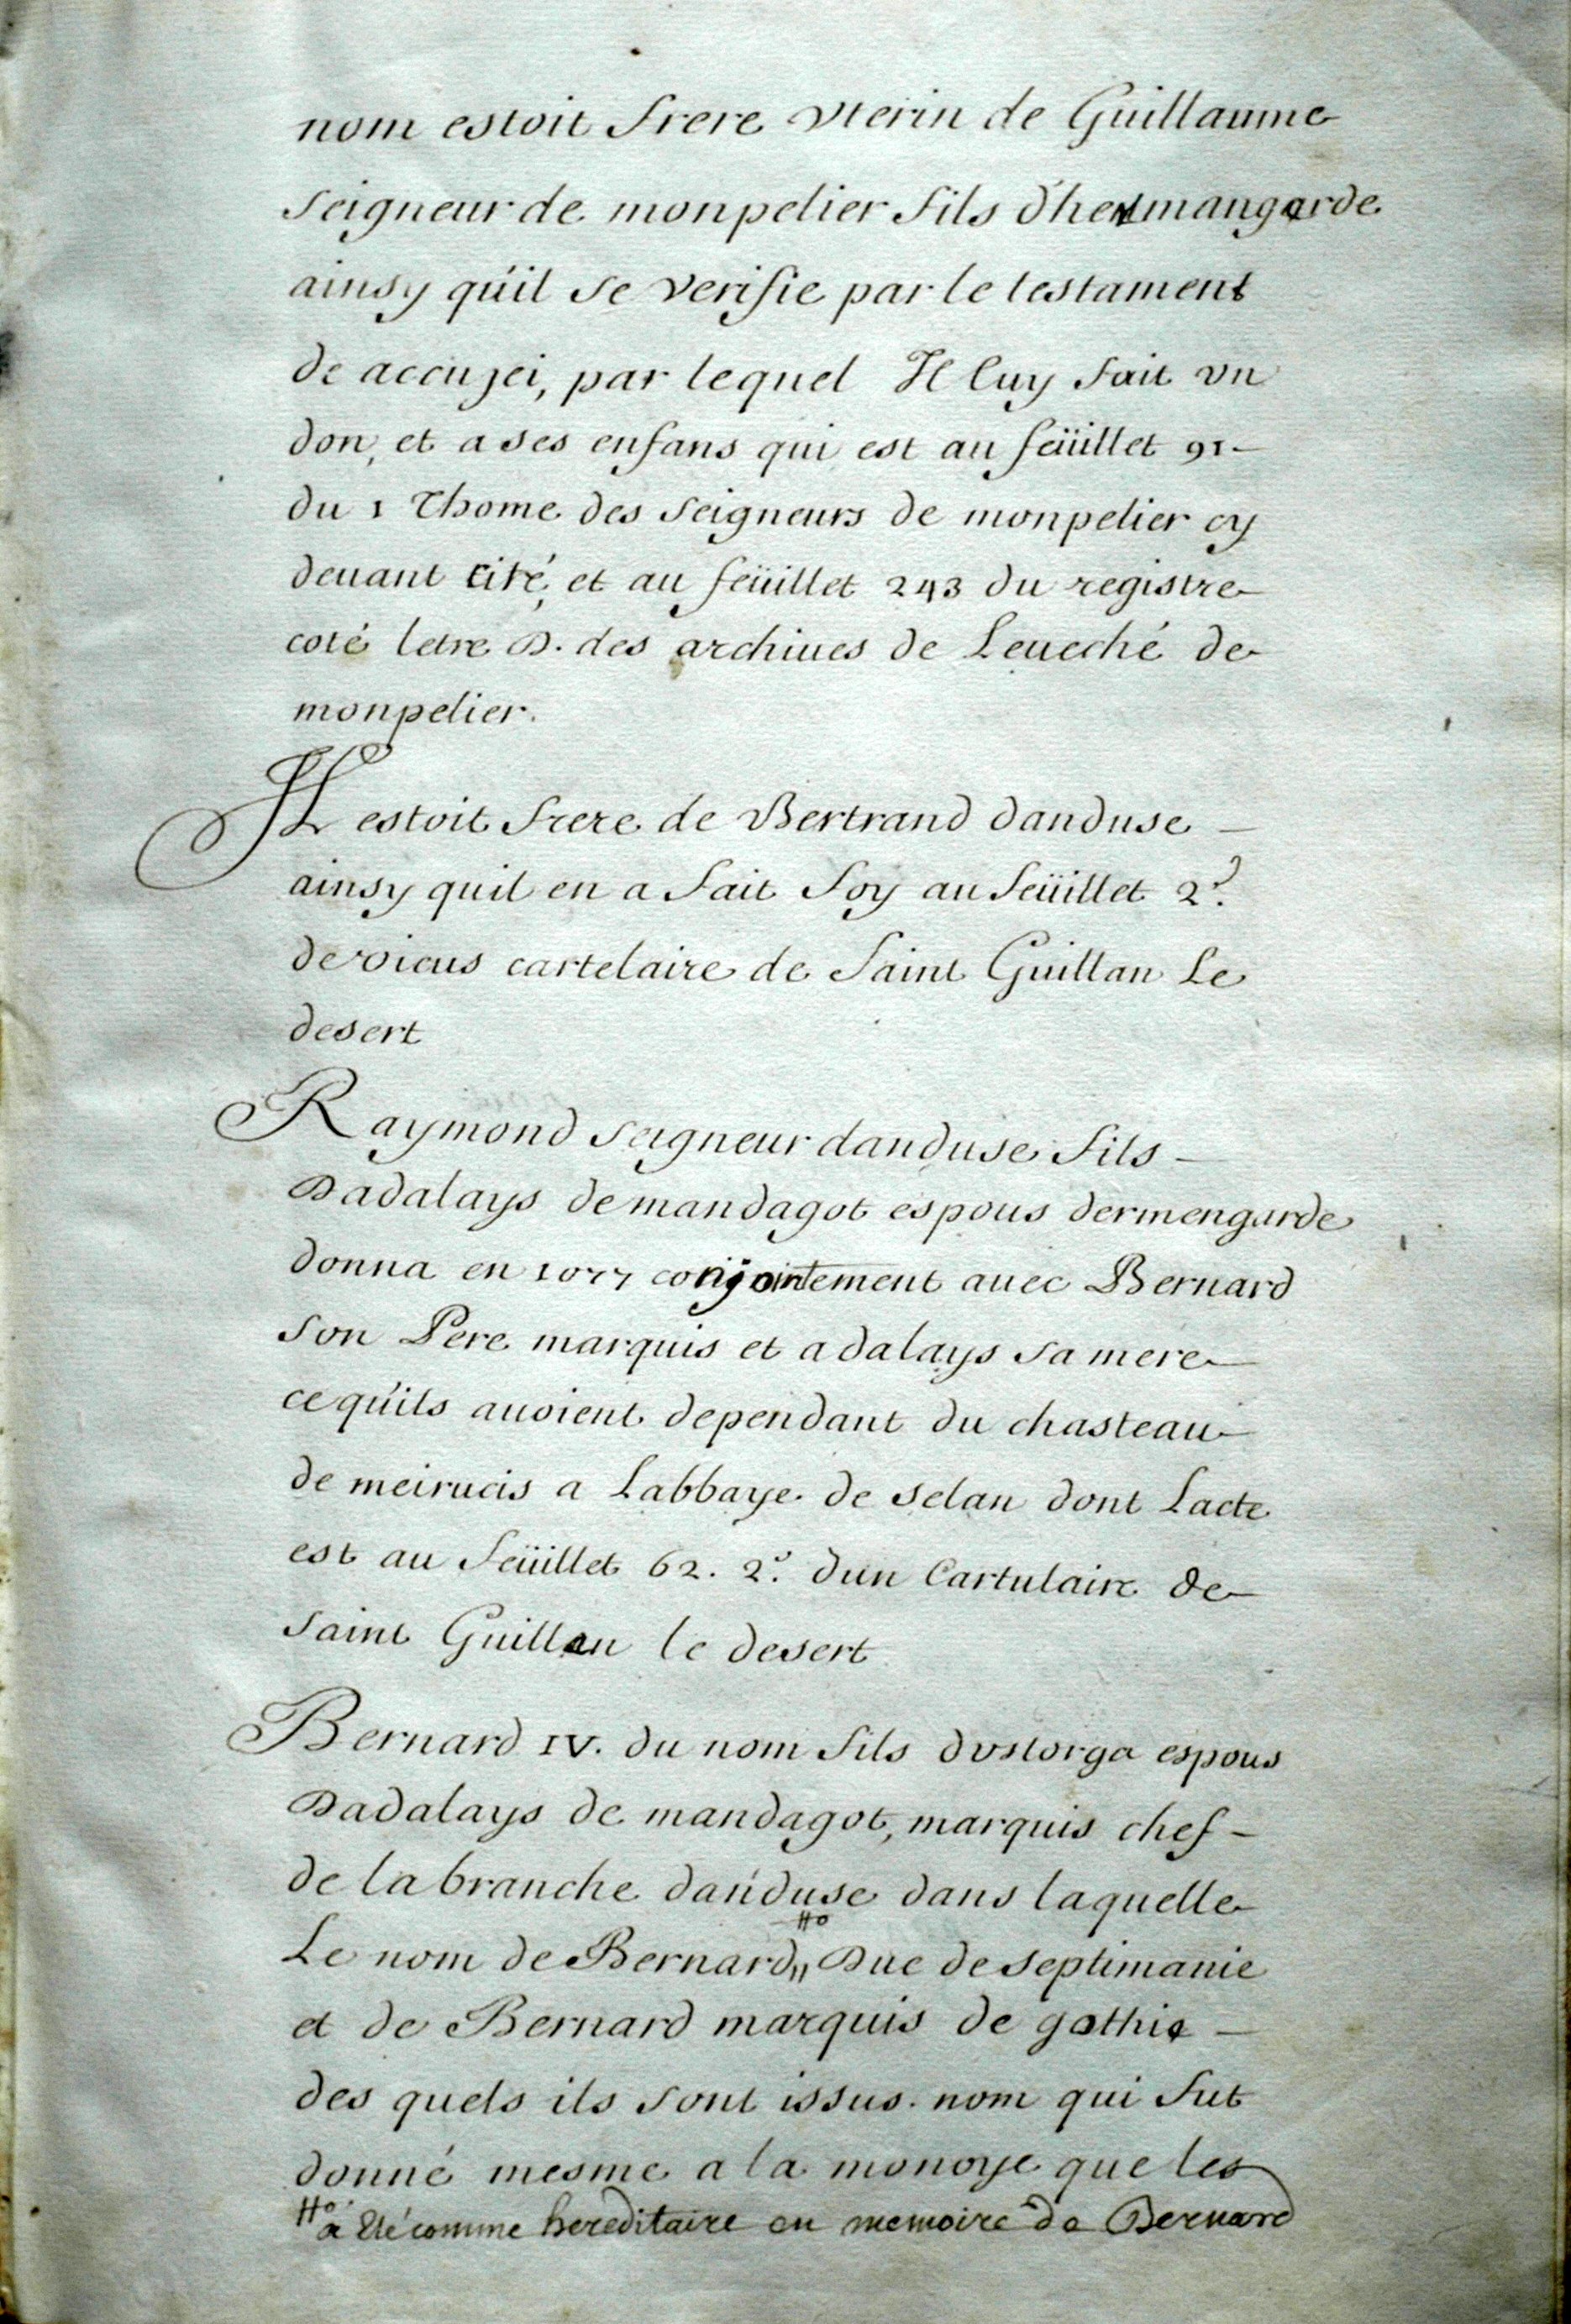 nom estoit frere vterin de Guillaume
seigneur de monpelier fils d'hermangarde
ainsy qu'il se verifie par le testament
de accuzei, par lequel Il luy fait vn
don, et a ses enfans qui est au feüillet 91-
du 1 Thome des seigneurs de monpelier cy
deuant cité, et au feüillet 243 du registre
coté letre D. des archiues de Leueché de
monpelier.
IL estoit frere de Bertrand danduse -
ainsy quil en a fait foy au feüillet 2º.
de vieus cartelaire de saint Guillan Le
desert
Raymond seigneur danduse fils -
Dadalays de mandagot espous dermengarde
donna en 1077 conjointement auec Bernard
son Pere marquis et adalays sa mere
ce qu'ils auoient dependant du chasteau
de meirucis a Labbaye de selan dont Lacte
est au feüillet 62. 2º. dun Cartulaire de
saint Guillen le desert
Bernard IV. du nom fils dvstorga espous
Dadalays de mandagot, marquis chef -
de la branche d'anduse dans laquelle
#o
Le nom de Bernard,, Duc de septimanie
et de Bernard marquis de gothie -
des quels ils sont issus. nom qui fut
donné mesme a la monoye que les
#o a eté comme hereditaire en memoire de Bernard